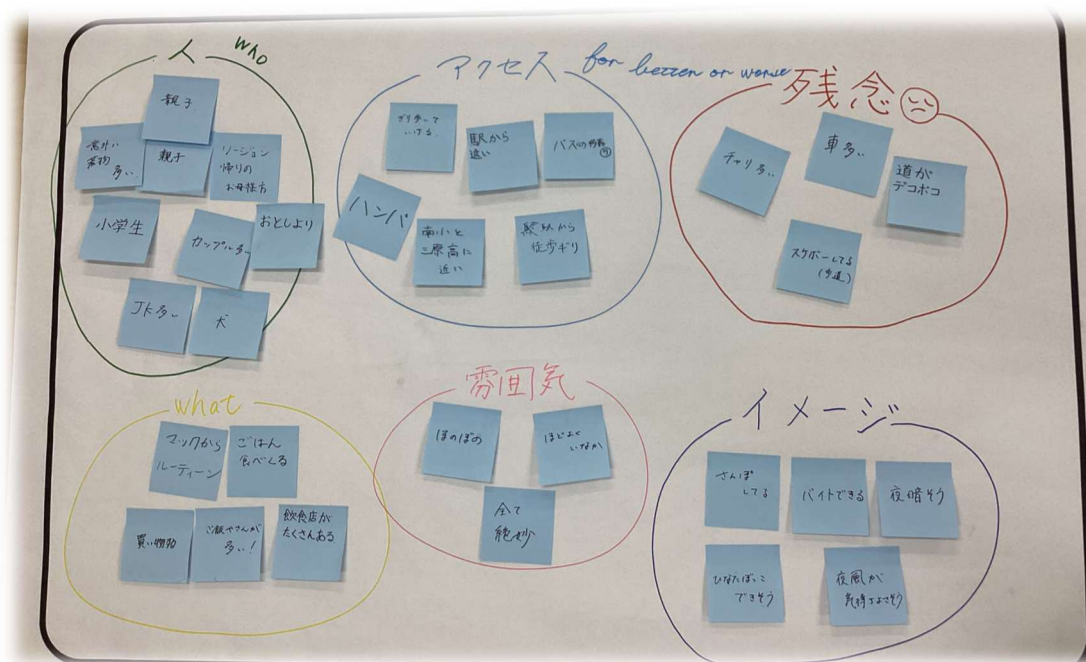 人 who
親子
意外に
荷物
多い
親子
リージョン
帰りの
お母様方
小学生
カップル多い
おとしより
JK多い
犬
アクセス for better or worse
ギリ歩いて
いける
駅から
遠い
バスの
ハンパ
南小と
三原高に
近い
駅から
徒歩ギリ
残念
チャリ多い
車多い
道が
デコボコ
スケボーしてる
(歩道)
what
マックから
ルーティーン
ごはん
食べくる
買い物
ご飯やさんが
多い!
飲食店が
たくさんある
雰囲気
ほのぼの
ほどよく
いなか
全て
絶妙
イメージ
さんぽ
してる
バイトできる
夜暗そう
ひなたぼっこ
できそう
夜風が
気持ちよさそう